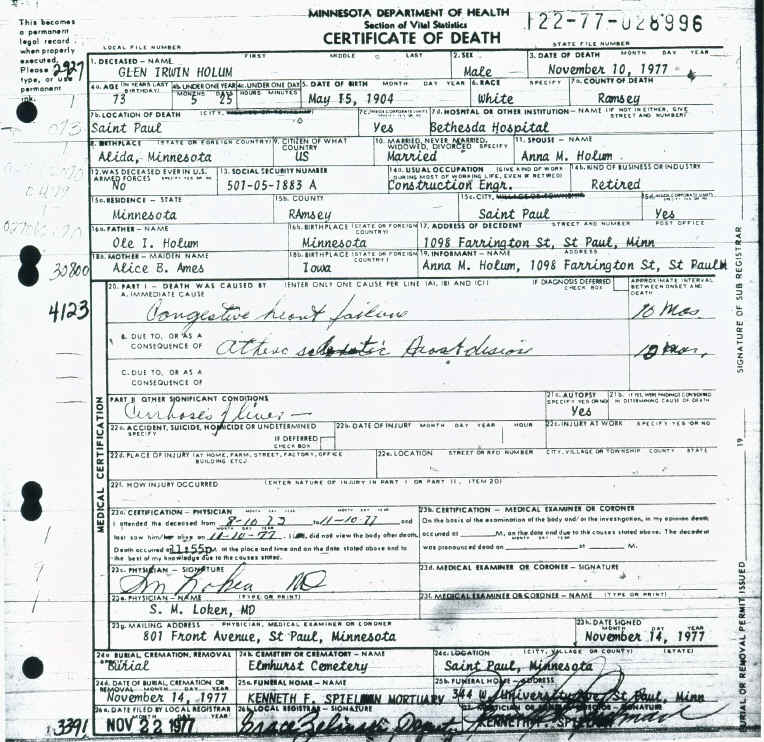 This becomes
a permanent
legal record
when properly
executed.
Please
type, or use
permanent
ink.
MINNESOTA DEPARTMENT OF HEALTH
Section of Vital Statistics
CERTIFICATE OF DEATH
122-77-028996
LOCAL FILE NUMBER STATE FILE NUMBER
1. DECEASED – NAME FIRST MIDDLE LAST 2. SEX 3. DATE OF DEATH MONTH DAY YEAR
GLEN IRWIN HOLUM Male November 10, 1977
4a. AGE (IN YEARS LAST BIRTHDAY) 4b. UNDER ONE YEAR MONTHS DAYS 4c. UNDER ONE DAY HOURS MINUTES 5. DATE OF BIRTH MONTH DAY YEAR 6. RACE SPECIFY 7a. COUNTY OF DEATH
73 5 25 May 15, 1904 White Ramsey
7b. LOCATION OF DEATH (CITY, 7d. HOSPITAL OR OTHER INSTITUTION – NAME (IF NOT IN EITHER, GIVE STREET AND NUMBER)
Saint Paul Yes Bethesda Hospital
8. BIRTHPLACE (STATE OR FOREIGN COUNTRY) 9. CITIZEN OF WHAT COUNTRY 10. MARRIED, NEVER MARRIED, WIDOWED, DIVORCED SPECIFY 11. SPOUSE – NAME
Alida, Minnesota US Married Anna M. Holum
12. WAS DECEASED EVER IN U.S. ARMED FORCES SPECIFY YES OR NO 13. SOCIAL SECURITY NUMBER 14a. USUAL OCCUPATION (GIVE KIND OF WORK DURING MOST OF WORKING LIFE, EVEN IF RETIRED) 14b. KIND OF BUSINESS OR INDUSTRY
No 501-05-1883 A Construction Engr. Retired
15a. RESIDENCE – STATE 15b. COUNTY 15c. CITY, VILLAGE OR TOWNSHIP
Minnesota RAmsey Saint Paul Yes
16a. FATHER – NAME 16b. BIRTHPLACE (STATE OR FOREIGN COUNTRY) 17. ADDRESS OF DECEDENT STREET AND NUMBER POST OFFICE
Ole I. Holum Minnesota 1098 Farrington St, St Paul, Minn
18a. MOTHER – MAIDEN NAME 18b. BIRTHPLACE (STATE OR FOREIGN COUNTRY) 19. INFORMANT – NAME ADDRESS
Alice B. Ames Iowa Anna M. Holum, 1098 Farrington St, St Paul M
30800
4123
20. PART I – DEATH WAS CAUSED BY (ENTER ONLY ONE CAUSE PER LINE (A), (B) AND (C)) IF DIAGNOSIS DEFERRED CHECK BOX APPROXIMATE INTERVAL BETWEEN ONSET AND DEATH
A. IMMEDIATE CAUSE
Congestive heart failure 10 Mos.
B. DUE TO, OR AS A CONSEQUENCE OF
C. DUE TO, OR AS A CONSEQUENCE OF
PART II OTHER SIGNIFICANT CONDITIONS 21a. AUTOPSY SPECIFY YES OR NO 21b. IF YES, WERE FINDINGS CONSIDERED IN DETERMINING CAUSE OF DEATH
Cirrhosis of liver – Yes
22a. ACCIDENT, SUICIDE, HOMICIDE OR UNDETERMINED SPECIFY IF DEFERRED CHECK BOX 22b. DATE OF INJURY MONTH DAY YEAR HOUR 22c. INJURY AT WORK SPECIFY YES OR NO
22d. PLACE OF INJURY (AT HOME, FARM, STREET, FACTORY, OFFICE BUILDING ETC.) 22e. LOCATION STREET OR RFD NUMBER CITY, VILLAGE OR TOWNSHIP COUNTY STATE
22f. HOW INJURY OCCURRED (ENTER NATURE OF INJURY IN PART I OR PART II, ITEM 20)
MEDICAL CERTIFICATION
23a. CERTIFICATION – PHYSICIAN MONTH DAY YEAR MONTH DAY YEAR 23b. CERTIFICATION – MEDICAL EXAMINER OR CORONER
I attended the deceased from to 11-10-77 and On the basis of the examination of the body and/or the investigation, in my opinion death
last saw him/her alive on 11-10-77. did not view the body after death. occurred at M, on the date and due to the causes stated. The decedent
Death occurred 11:55p M. at the place and time and on the date stated above and to was pronounced dead on at M.
the best of my knowledge due to the causes stated.
23c. PHYSICIAN – SIGNATURE 23d. MEDICAL EXAMINER OR CORONER – SIGNATURE
SM Loken MD
23e. PHYSICIAN – NAME (TYPE OR PRINT) 23f. MEDICAL EXAMINER OR CORONER – NAME (TYPE OR PRINT)
S. M. Loken, MD
23g. MAILING ADDRESS PHYSICIAN, MEDICAL EXAMINER OR CORONER 23h. DATE SIGNED MONTH DAY YEAR
801 Front Avenue, St Paul, Minnesota November 14, 1977
24a. BURIAL, CREMATION, REMOVAL 24b. CEMETERY OR CREMATORY – NAME 24c. LOCATION (CITY, VILLAGE OR COUNTY) (STATE)
Burial Elmhurst Cemetery Saint Paul, Minnesota
24d. DATE OF BURIAL, CREMATION OR REMOVAL MONTH DAY YEAR 25a. FUNERAL HOME – NAME 25b. FUNERAL HOME – ADDRESS
November 14, 1977 KENNETH F. SPIELMAN MORTUARY 344 W. University Ave, St Paul, Minn
26a. DATE FILED BY LOCAL REGISTRAR 26b. LOCAL REGISTRAR – SIGNATURE
3391 NOV 22 1977 Grace Zelinski Deputy KENNETH F. SPIELMAN
SIGNATURE OF SUB REGISTRAR
19
BURIAL OR REMOVAL PERMIT ISSUED